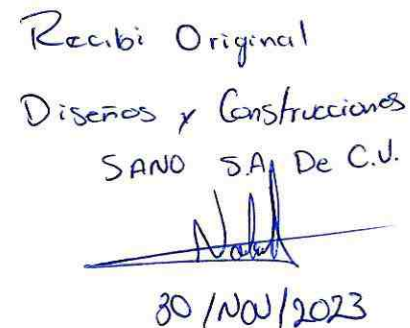 Recibi Original
Diseños y Construcciones
SANO S.A. De C.V.
30/NOV/2023